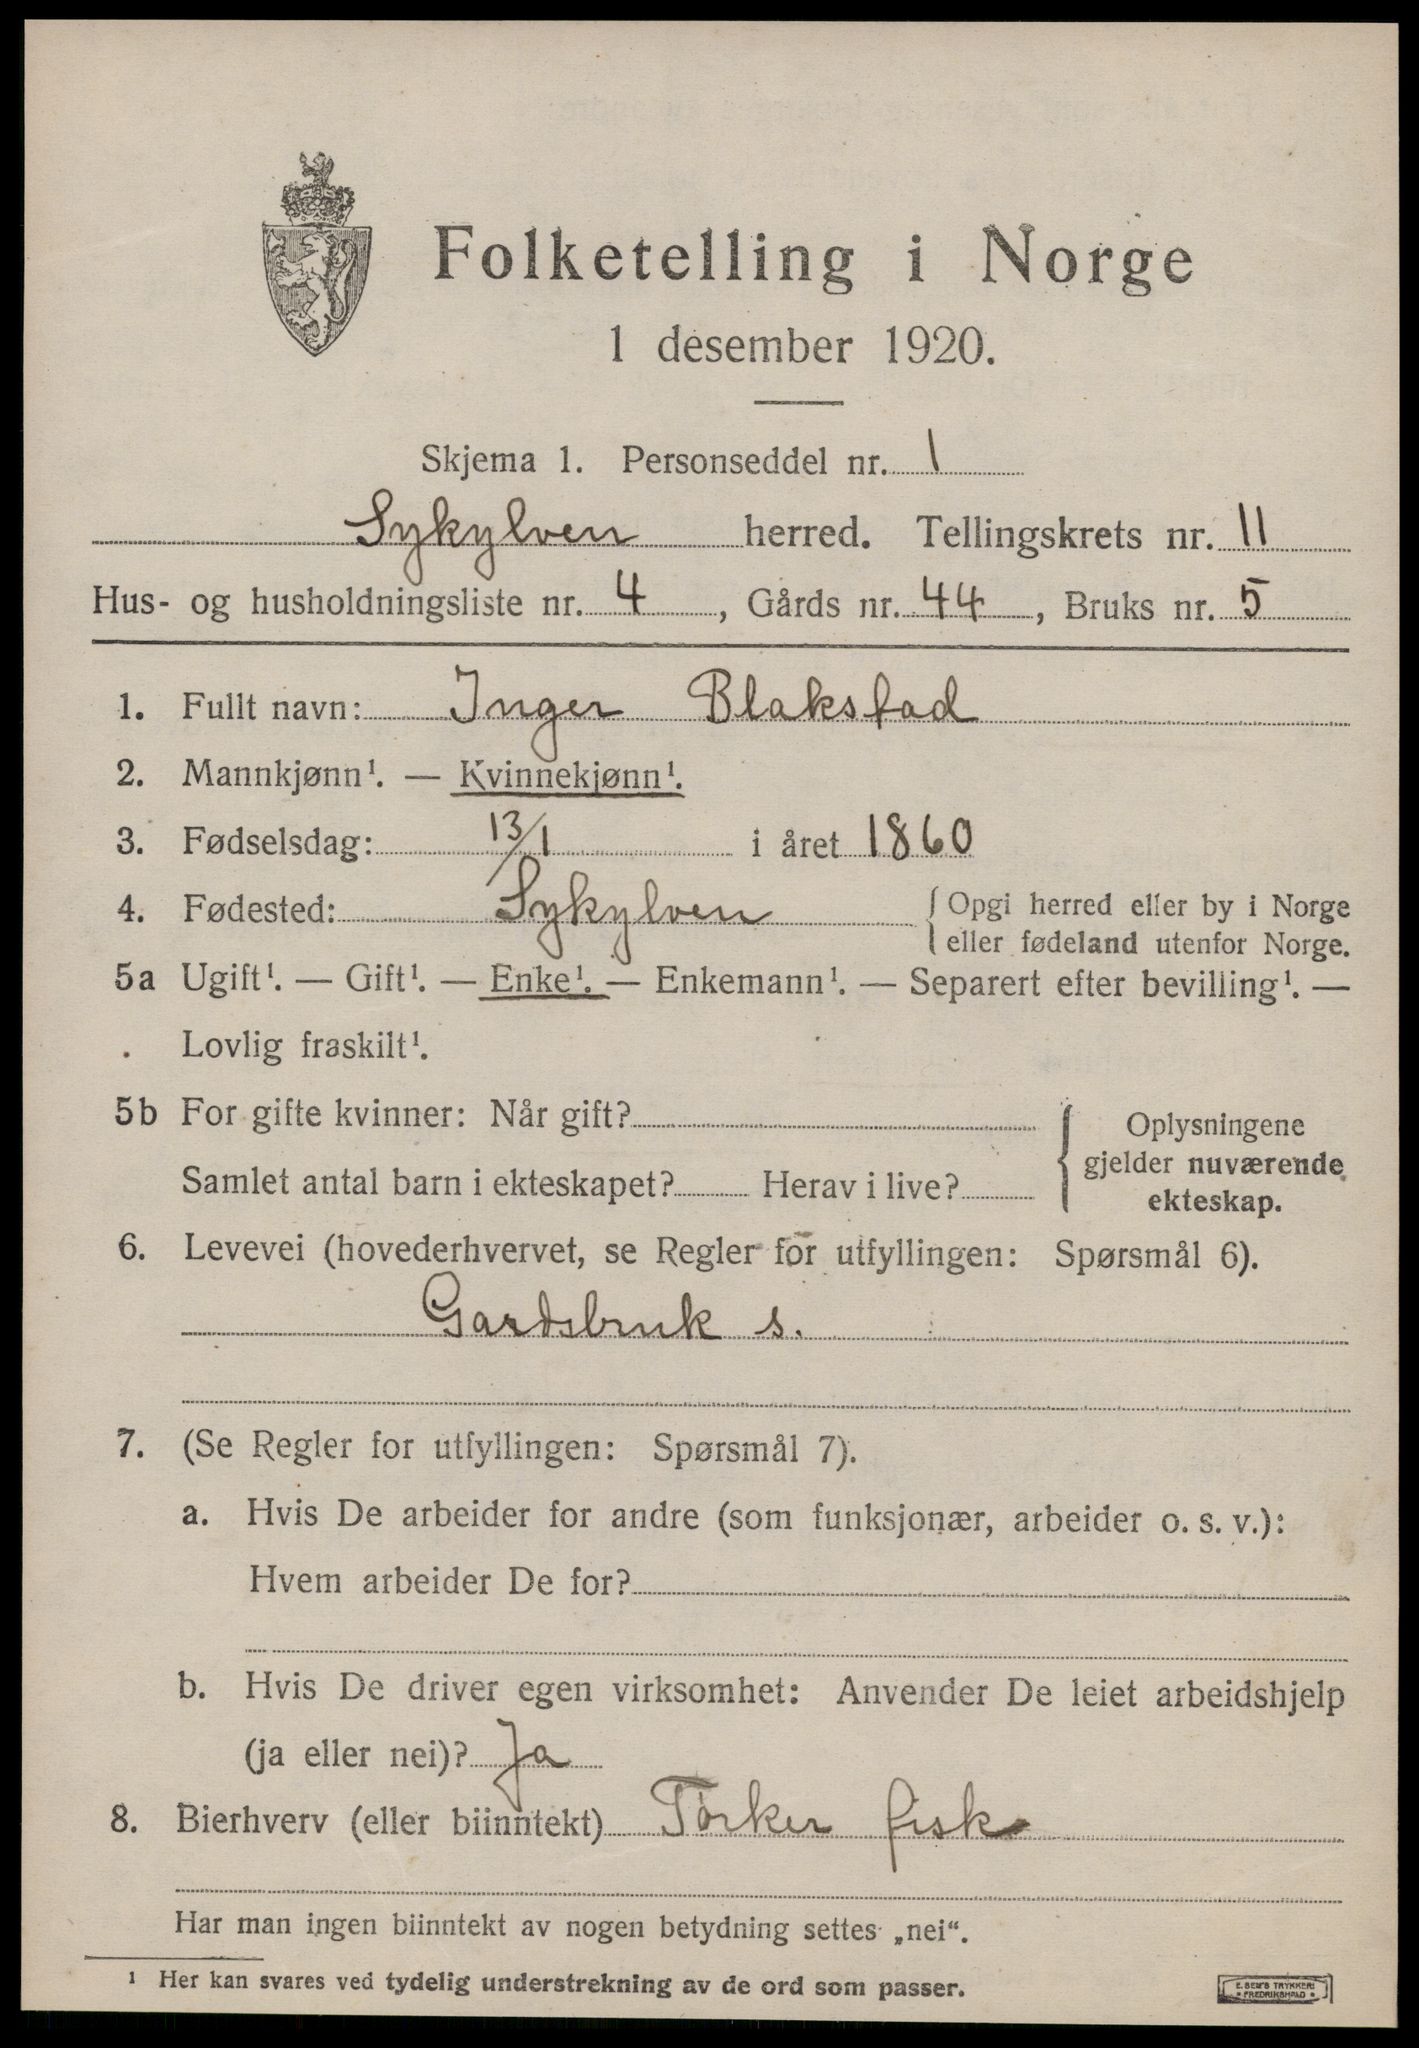 Folketelling i Norge
1 desember 1920.
Skjema 1. Personseddel nr. 1
Sykylven herred. Tellingskrets nr. 11
Hus- og husholdningsliste nr. 4, Gårds nr. 44, Bruks nr. 5
1. Fullt navn: Inger Blakstad
2. Mannkjønn¹. — Kvinnekjønn¹.
3. Fødselsdag: 13/1 i året 1860
4. Fødested: Sykylven { Opgi herred eller by i Norge
eller fødeland utenfor Norge.
5a Ugift¹. — Gift¹. — Enke¹. — Enkemann¹. — Separert efter bevilling¹. —
Lovlig fraskilt¹.
5b For gifte kvinner: Når gift?
Samlet antal barn i ekteskapet? Herav i live?
Oplysningene
gjelder nuværende
ekteskap.
6. Levevei (hovederhvervet, se Regler for utfyllingen: Spørsmål 6).
Gardsbruk s.
7. (Se Regler for utfyllingen: Spørsmål 7).
a. Hvis De arbeider for andre (som funksjonær, arbeider o. s. v.):
Hvem arbeider De for?
b. Hvis De driver egen virksomhet: Anvender De leiet arbeidshjelp
(ja eller nei)? Ja
8. Bierhverv (eller biinntekt) Torker fisk
Har man ingen biinntekt av nogen betydning settes „nei“.
¹ Her kan svares ved tydelig understrekning av de ord som passer.
E. SEM'S TRYKKERI
• FREDRIKSHALD •